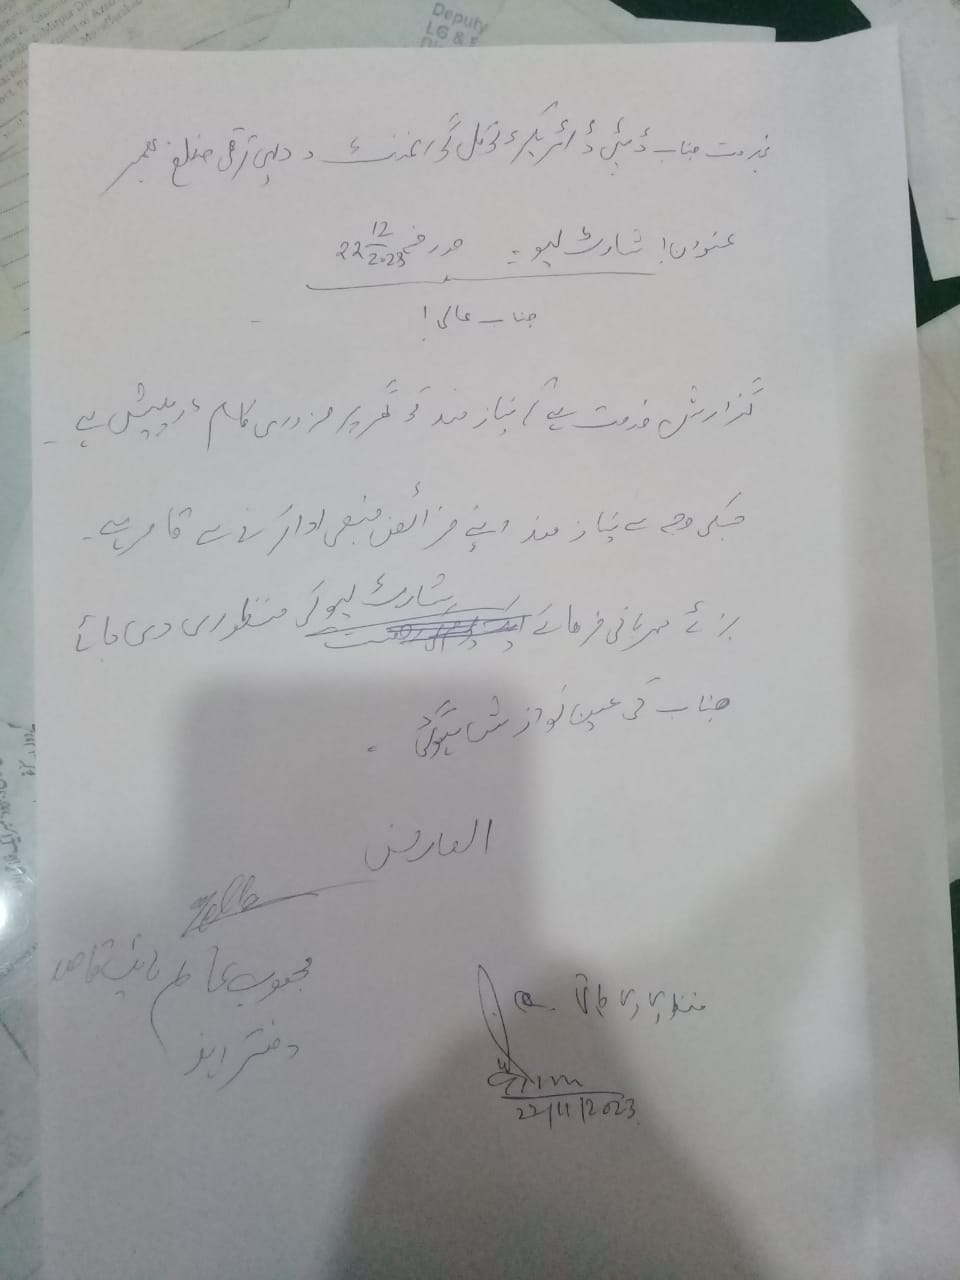 Deputy
LG &
بخدمت جناب ڈپٹی ڈائریکٹر لوکل گورنمنٹ و دیہی ترقی ضلع بھمبر
عنوان! شارٹ لیو ۔ مورخہ 22 12/2023
جناب عالی!
گزارش خدمت ہے / نیاز مند کو گھر پر ضروری کام درپیش ہے ۔
جسکی وجہ سے نیاز مند اپنے فرائض منصبی ادا کرنے سے قاصر ہے ۔
برائے مہربانی فرمائے شارٹ لیو کی منظوری دی جائے
جناب کی عین نوازش ہوگی ۔
العارض
محبوب عالم نائب قاصد
دفتر ایذ
منظور
22/11/2023